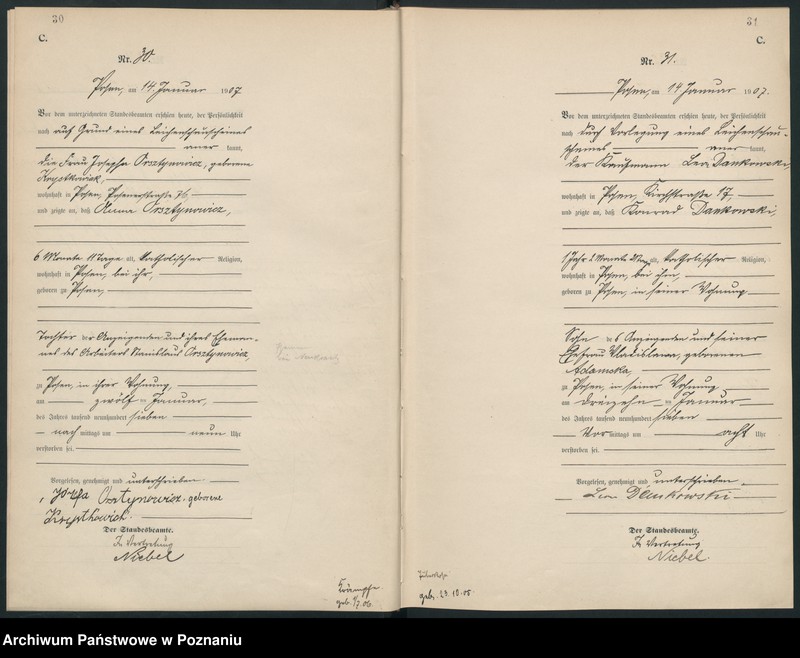 30
C.
Nr. 30.
Posen, am 14 Januar 1907
Vor dem unterzeichneten Standesbeamten erschien heute, der Persönlichkeit
nach auf Grund eines Leichenschauscheines
aner kannt,
die Frau Josepha Orsztynowicz, geborene
wohnhaft in Posen, Posenerstraße
und zeigte an, daß Anna Orsztynowicz,
6 Monate 11 Tage alt, katholischer Religion,
wohnhaft in Posen, bei ihr,
geboren zu Posen,
Tochter der Anzeigenden und ihres Eheman-
nes des Arbeiters Stanislaus Orsztynowicz,
zu Posen, in ihrer Wohnung,
am zwölf ten Januar,
des Jahres tausend neunhundert sieben
nach mittags um neun Uhr
verstorben sei.
Vorgelesen, genehmigt und unterschrieben
Józefa Osztynowicz, geborene
Der Standesbeamte.
In Vertretung
Niebel
geb. 1/7. 06.
31
C.
Nr. 31.
Posen, am 14 Januar 1907.
Vor dem unterzeichneten Standesbeamten erschien heute, der Persönlichkeit
nach durch Vorlegung eines Leichenschau-
scheines aner kannt,
der Kaufmann Leo Dankowski,
wohnhaft in Posen, Kirchstraße 17,
und zeigte an, daß Konrad Dankowski,
1 Jahr 2 Monate alt, katholischer Religion,
wohnhaft in Posen, bei ihm,
geboren zu Posen, in seiner Wohnung
Sohn des Anzeigenden und seiner
Ehefrau Wladislawa, geborenen
Adamska,
zu Posen, in seiner Wohnung
am dreizehn ten Januar
des Jahres tausend neunhundert sieben
Vor mittags um acht Uhr
verstorben sei.
Vorgelesen, genehmigt und unterschrieben
Leon Dankowski
Der Standesbeamte.
In Vertretung
Niebel.
geb. 23.10.05
Archiwum Państwowe w Poznaniu